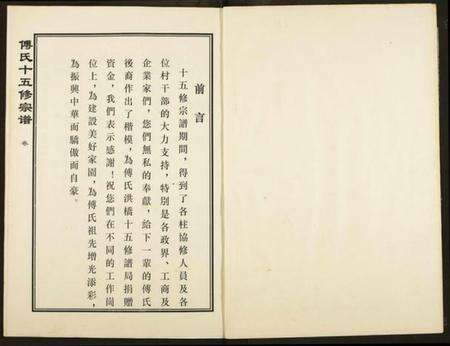 前言
十五修宗譜期間，得到了各柱協修人員及各
位村干部的大力支持，特別是各政界、工商及
企業家們，您們無私的奉獻，給下一輩的傅氏
後裔作出了楷模，為傅氏洪橋十五修譜局捐贈
資金，我們表示感謝！祝您們在不同的工作崗
位上，為建設美好家園，為傅氏祖先增光添彩，
為振興中華而驕傲而自豪。
傅氏十五修宗谱
卷